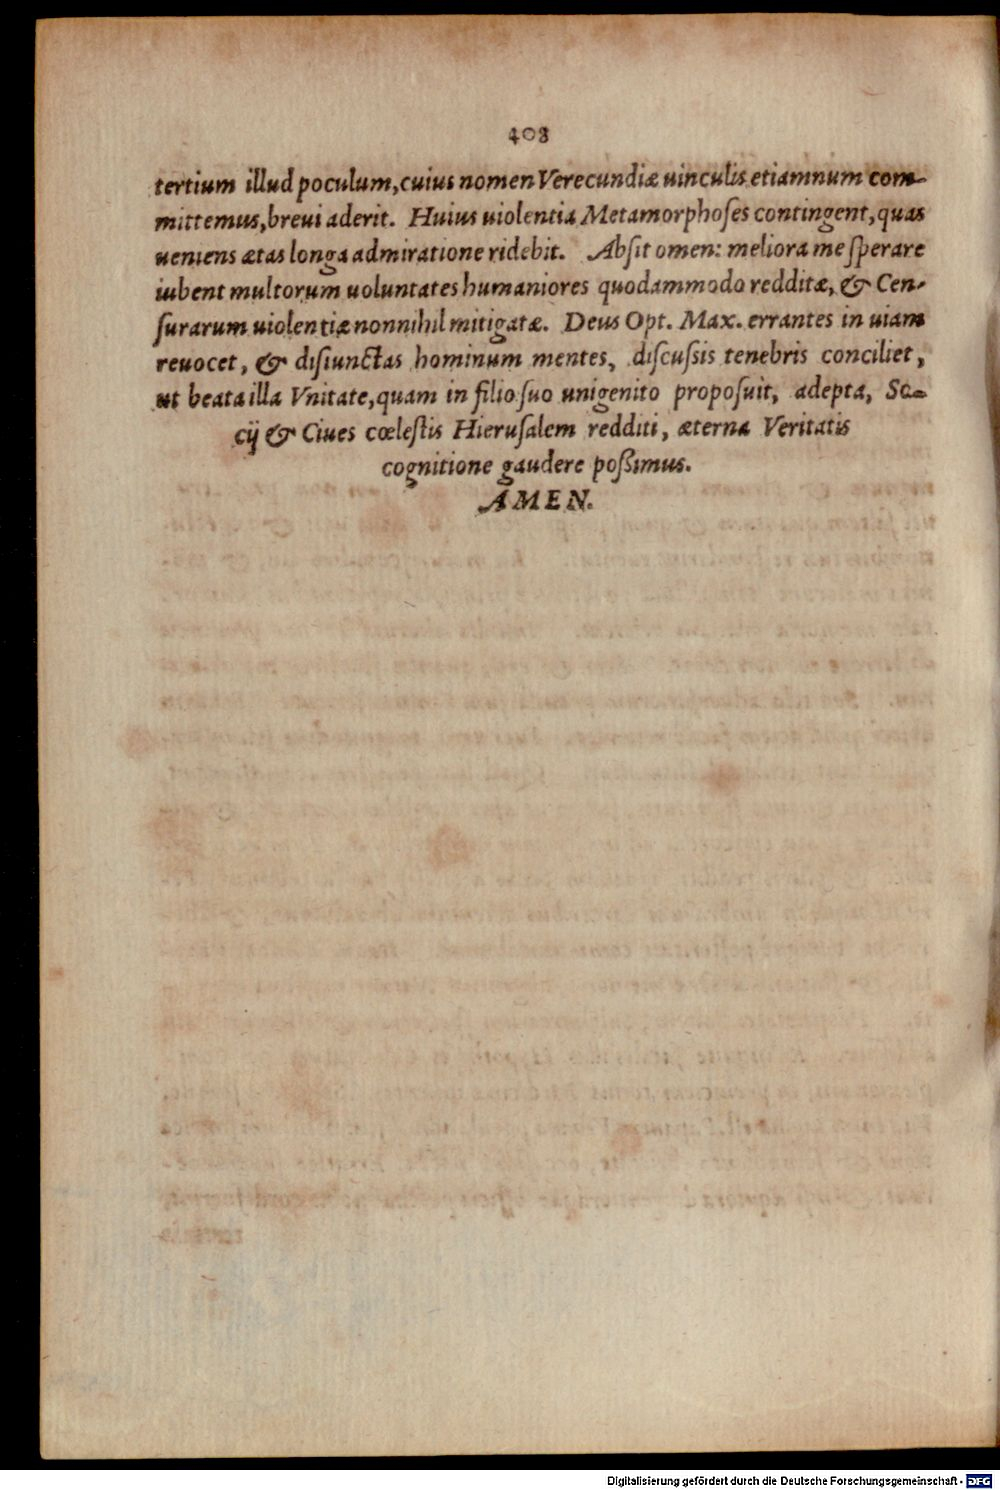 408
tertium illud poculum, cuius nomen Verecundiæ uinculis etiamnum com-
mittemus, breui aderit. Huius uiolentia Metamorphoses contingent, quas
ueniens ætas longa admiratione ridebit. Absit omen: meliora me sperare
iubent multorum uoluntates humaniores quodammodo redditæ, & Cen-
surarum uiolentiæ nonnihil mitigatæ. Deus Opt. Max. errantes in uiam
reuocet, & disiunctas hominum mentes, discussis tenebris conciliet,
ut beata illa Vnitate, quam in filio suo unigenito proposuit, adepta, So-
cij & Ciues cœlestis Hierusalem redditi, æterna Veritatis
cognitione gaudere poßimus.
AMEN.
Digitalisierung gefördert durch die Deutsche Forschungsgemeinschaft - DFG